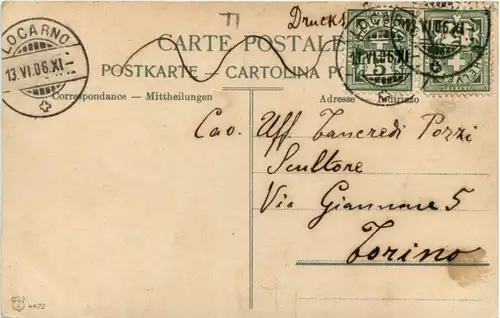 Drucks
CARTE POSTALE
POSTKARTE - CARTOLINA PO
LOCARNO
13.VI.06.XI
LOCARNO
13.VI.06.XI
5
5
HELVETIA
Correspondance - Mittheilungen
Adresse - Indirizzo
Cav. Uff. Tancredi Pozzi
Scultore
Via Giannone 5
Torino
4472